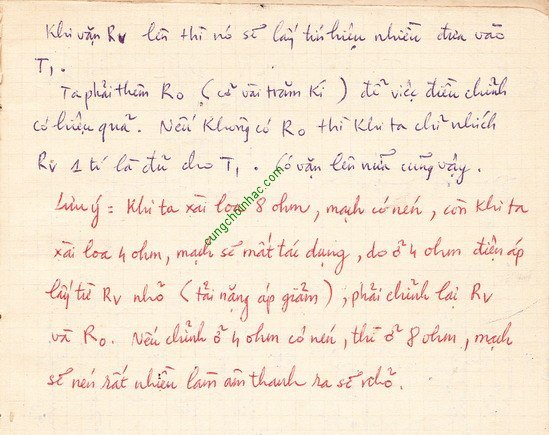 Khi vặn Rv lên thì nó sẽ lấy tín hiệu nhiều đưa vào
T1.
Ta phải thêm Ro (cỡ vài trăm Kí) để việc điều chỉnh
có hiệu quả. Nếu không có Ro thì khi ta chỉ nhích
Rv 1 tí là đủ cho T1. Có vặn lên nữa cũng vậy.
Lưu ý = Khi ta xài loa 8 ohm, mạch có nén, còn khi ta
xài loa 4 ohm, mạch sẽ mất tác dụng, do ở 4 ohm điện áp
lấy từ Rv nhỏ (tải nặng áp giảm), phải chỉnh lại Rv
và Ro. Nếu chỉnh ở 4 ohm có nén, thì ở 8 ohm, mạch
sẽ nén rất nhiều làm âm thanh ra sẽ nhỏ.
cungchoinhac.com